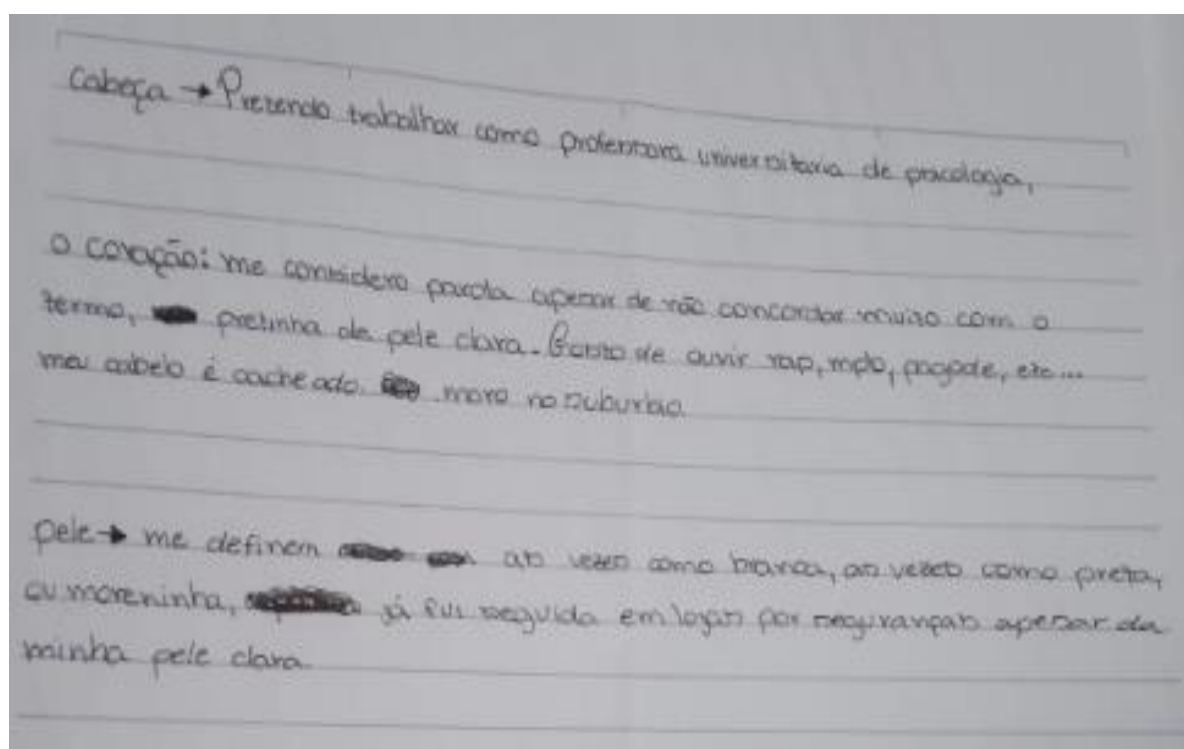 Cabeça → Pretendo trabalhar como professora universitaria de psicologia,
O coração: me considero parda apesar de não concordar muito com o
termo, pretinha de pele clara. Gosto de ouvir rap, mpb, pagode, etc...
meu cabelo é cacheado. moro no suburbio
pele → me definem as vezes como branca, as vezes como preta,
ou moreninha, já fui seguida em lojas por seguranças apesar da
minha pele clara